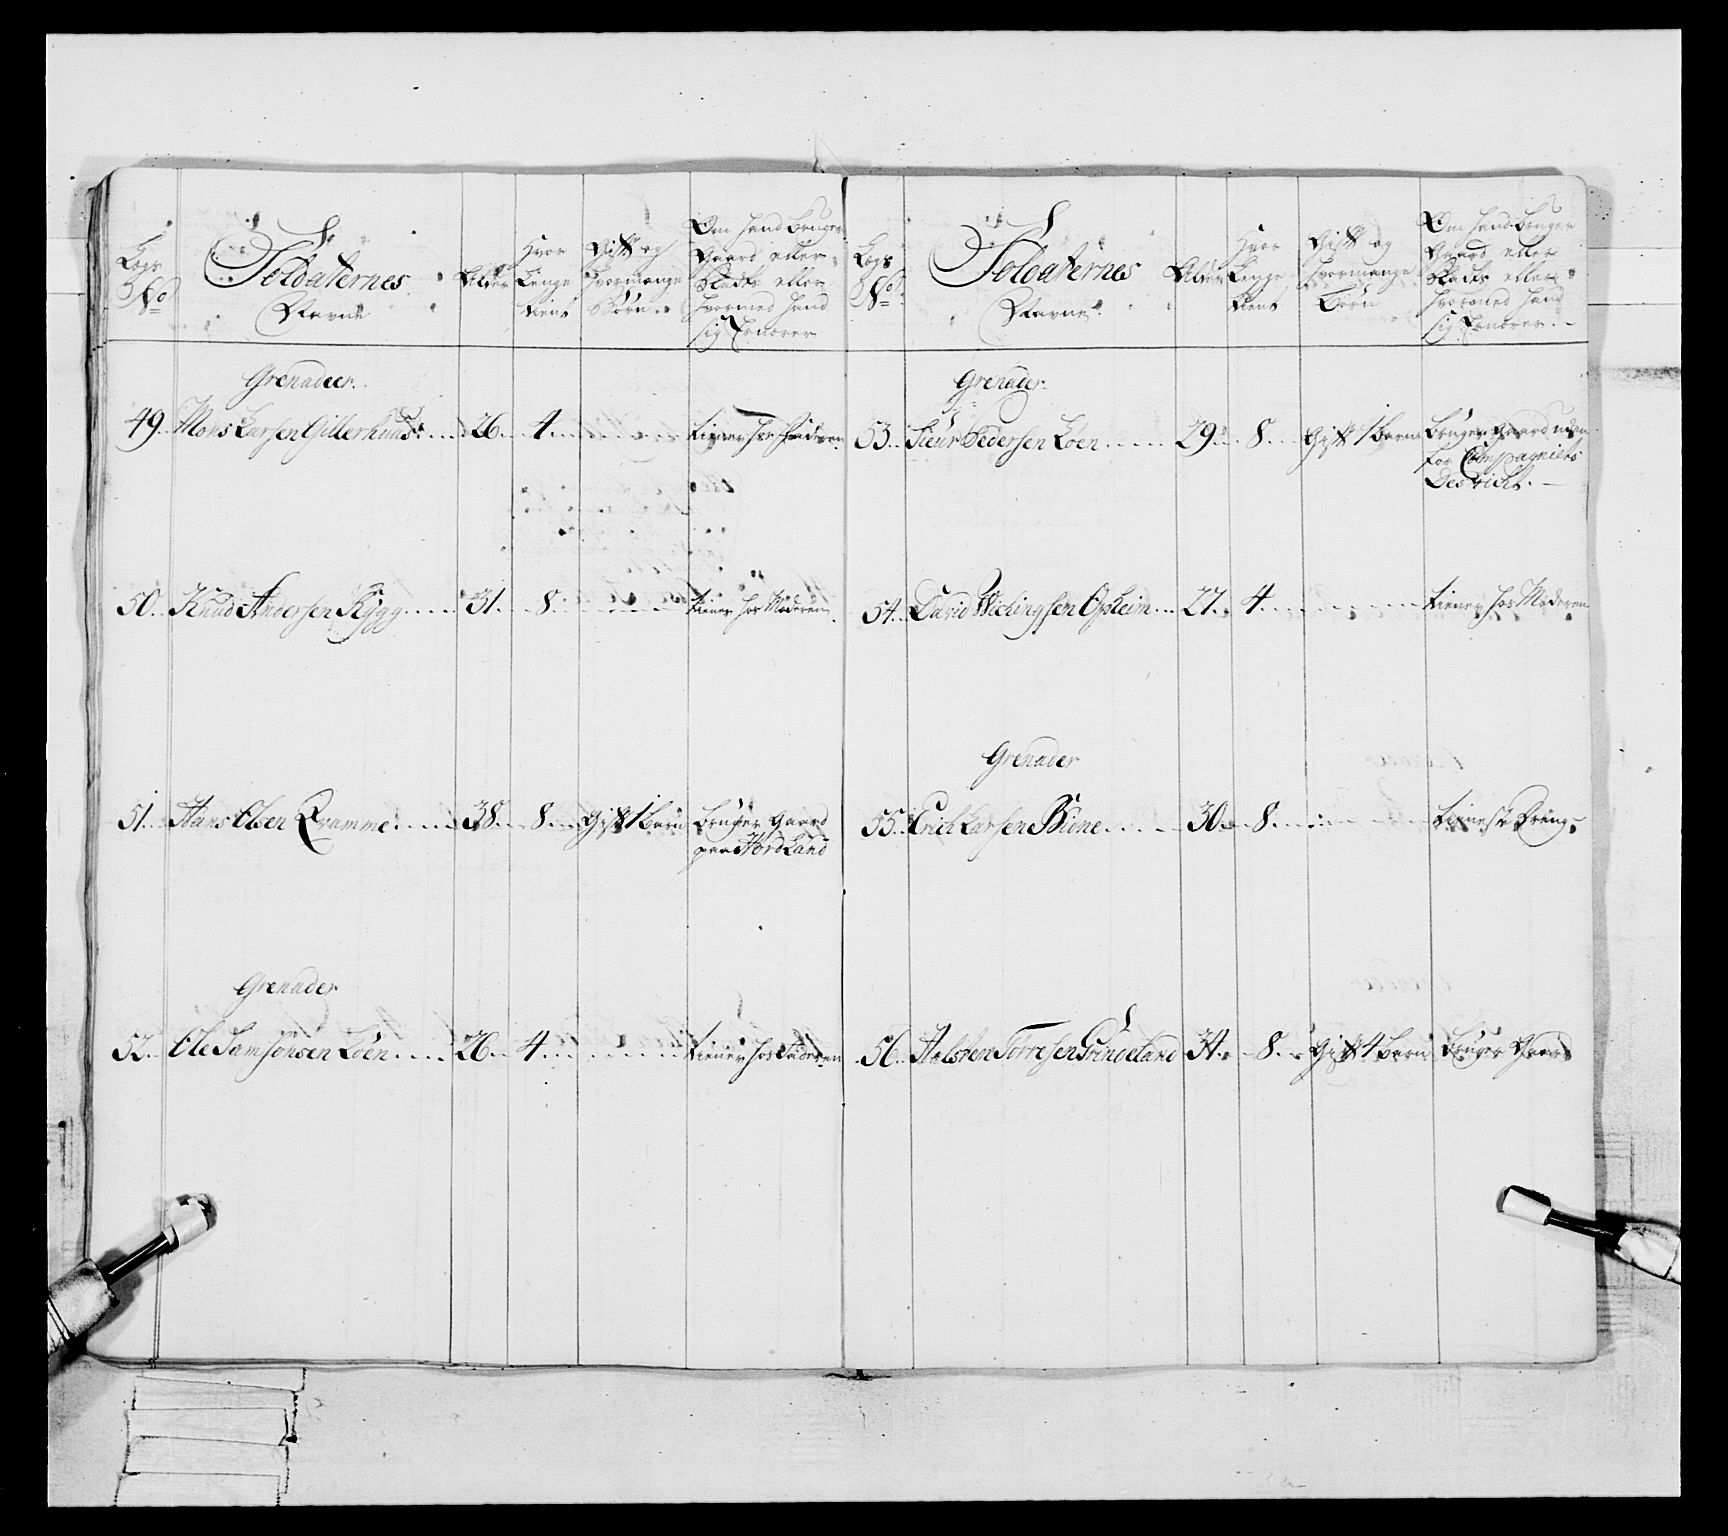 Logs
No
Soldaternes
Navne
Alder
Hvor
Længe
tient
Gift og
hvormange
Børn
Om hand bruger
Gaard eller
Plads eller
hvormed hand
sig Ernærer
Grenadeer
49 Mons Larsen Gillerhuus 26 4 tiener hos Faderen
50 Knud Andersen Rygg 31 8 tiener hos Moderen
51 Hans Olsen Kramme 38 8 Gift 1 barn bruger Gaard
paa Nordland
Grenader
52 Ole Samsonsen Løen 26 4 tiener hos Faderen
Logs
No
Soldaternes
Navne
Alder
Hvor
Længe
tient
Gift og
hvormange
Børn
Om hand bruger
Gaard eller
Plads eller
hvormed hand
sig Ernærer
Grenader
53 Siur Pedersen Løen 29 8 Gift 1 barn bruger Gaard uden
for Compagniets
Destricht
54 David Wichingsen Opheim 27 4 tiener hos Moderen
Grenader
55 Erich Larsen 30 8 tieneste Dreng
56 Halsten Torresen Grindeland 34 8 Gift 4 børn bruger Gaard